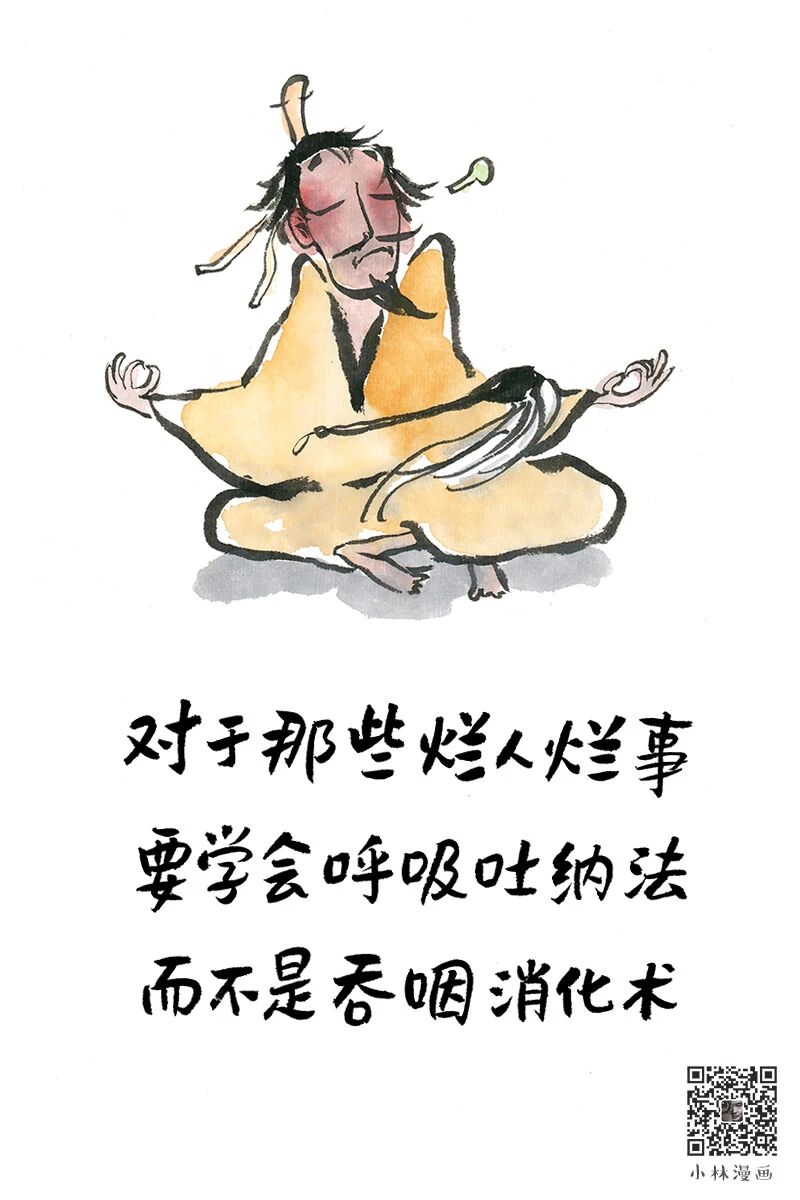 对于那些烂人烂事
要学会呼吸吐纳法
而不是吞咽消化术
小林漫画